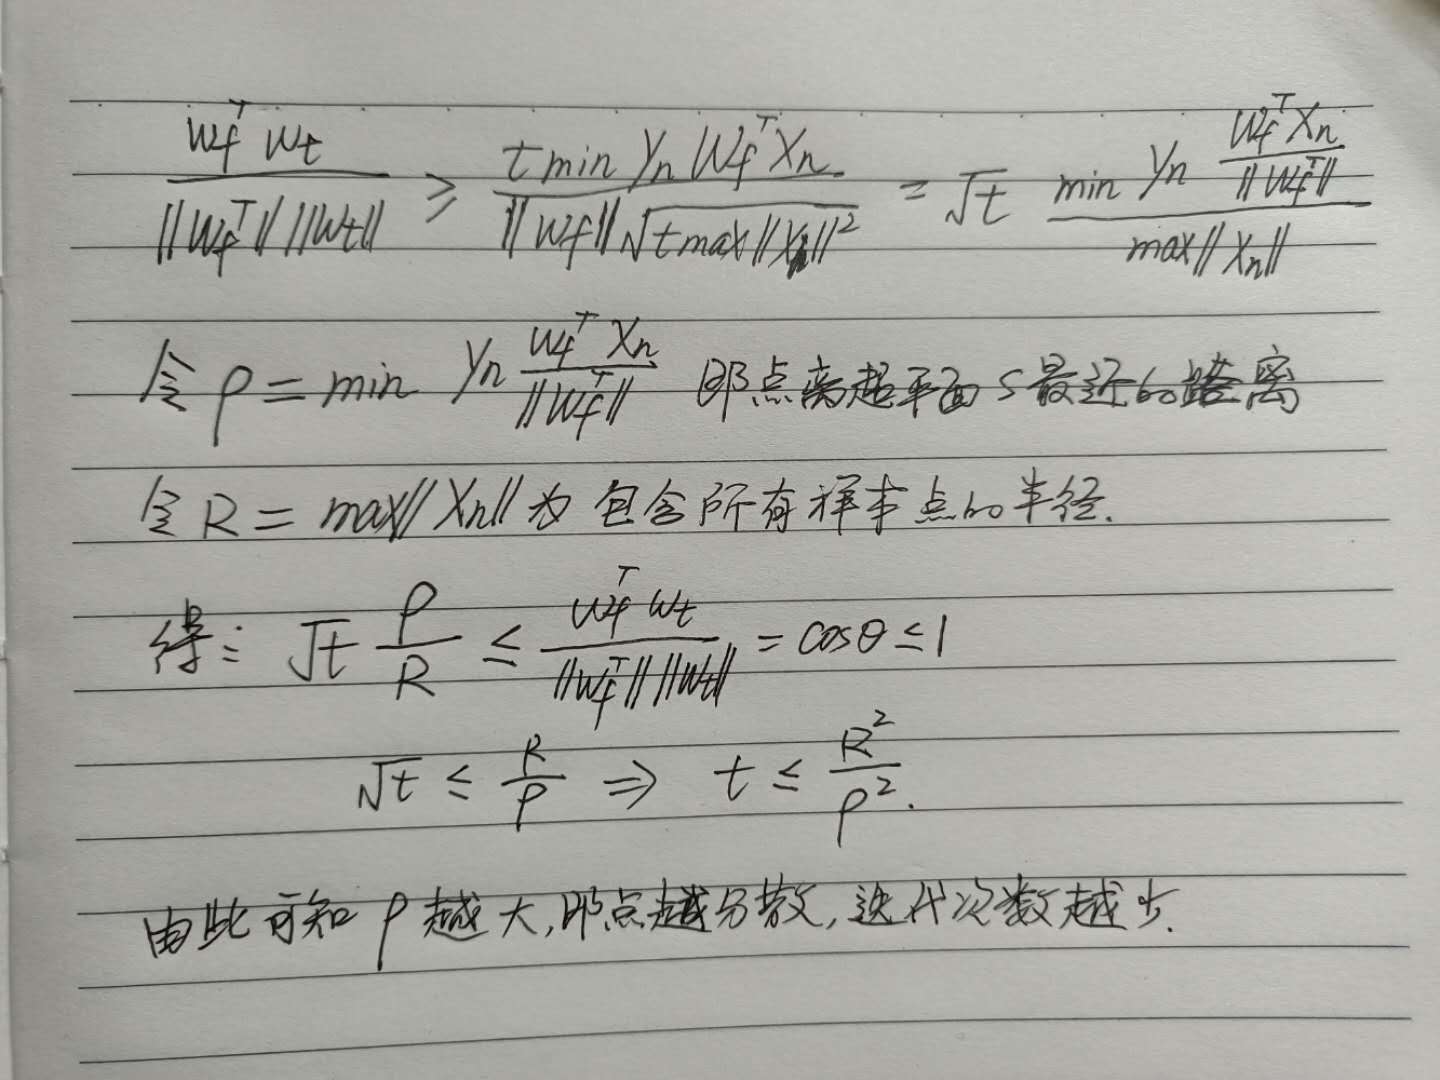 $\frac{W_f^T W_t}{\|W_f^T\| \|W_t\|} \geq \frac{t \min y_n W_f^T X_n}{\|W_f\| \sqrt{t \max \|X_n\|^2}} = \sqrt{t} \frac{\min y_n \frac{W_f^T X_n}{\|W_f^T\|}}{\max \|X_n\|}$
令 $\rho = \min y_n \frac{W_f^T X_n}{\|W_f^T\|}$ 即点离超平面S最近的距离
令 $R = \max \|X_n\|$ 为包含所有样本点的半径.
得: $\sqrt{t} \frac{\rho}{R} \leq \frac{W_f^T W_t}{\|W_f^T\| \|W_t\|} = \cos\theta \leq 1$
$\sqrt{t} \leq \frac{R}{\rho} \Rightarrow t \leq \frac{R^2}{\rho^2}.$
由此可知 ρ 越大,即点越分散,迭代次数越少.